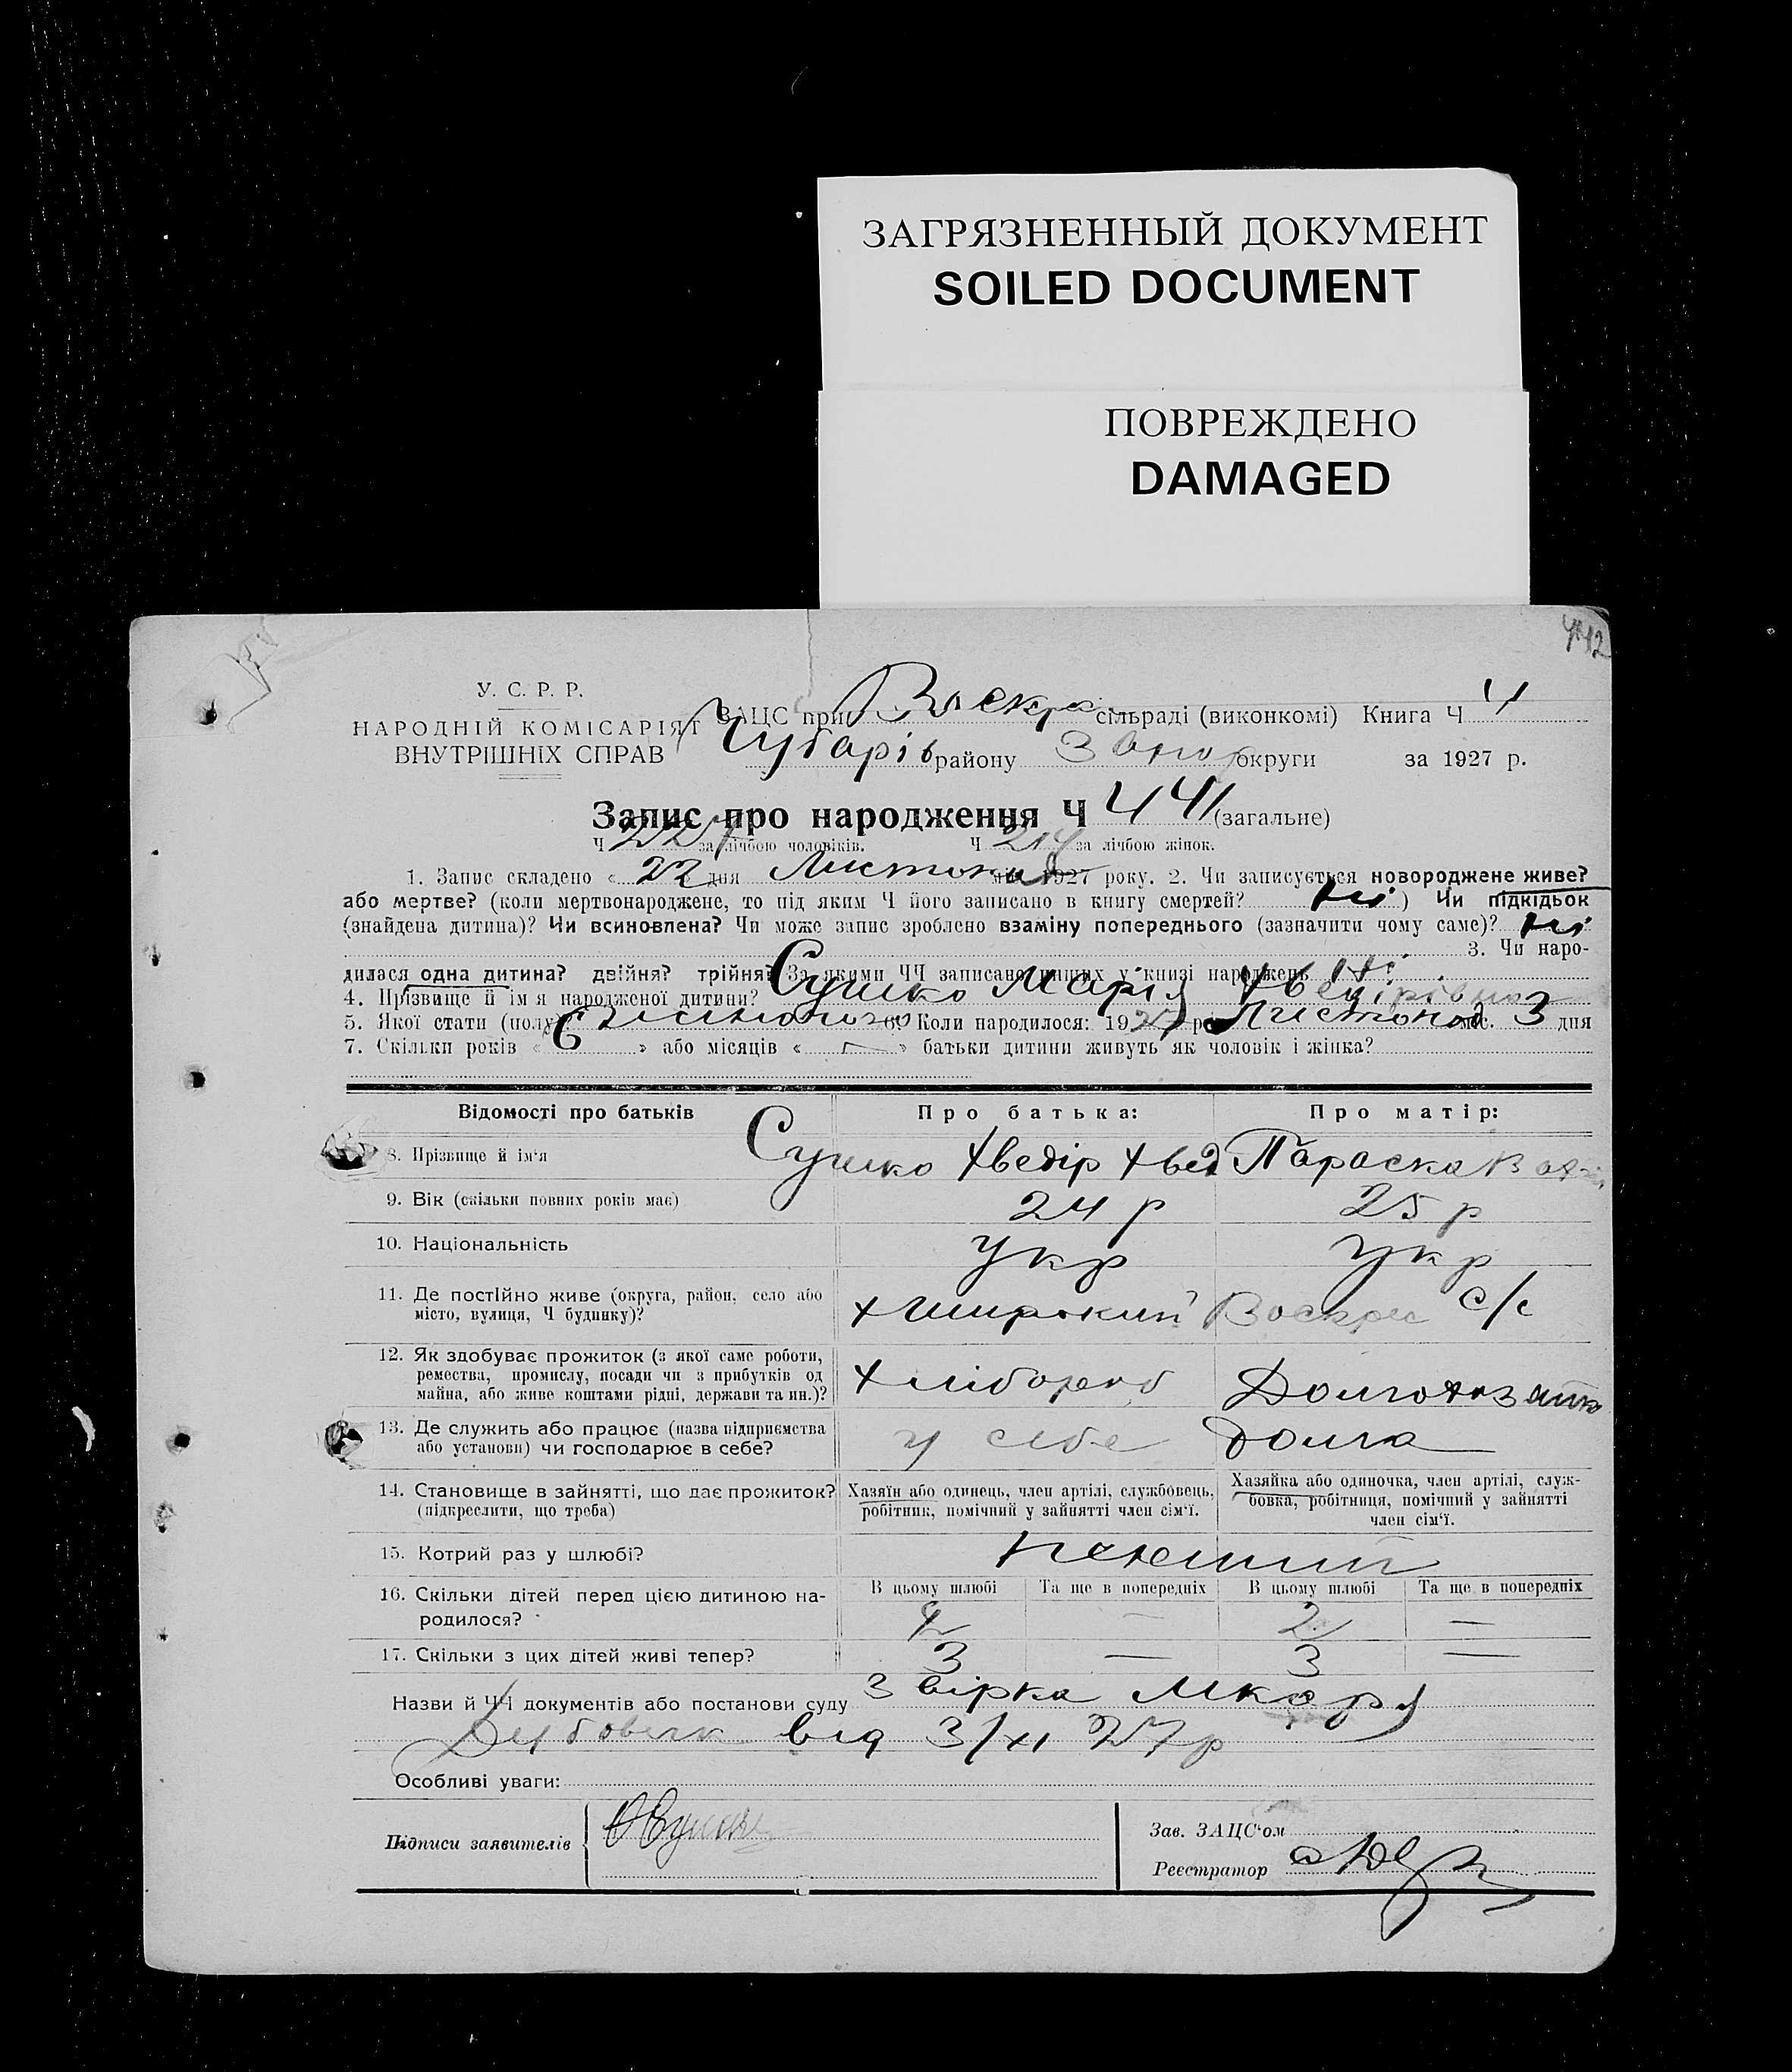 ЗАГРЯЗНЕННЫЙ ДОКУМЕНТ
SOILED DOCUMENT
ПОВРЕЖДЕНО
DAMAGED
У. С. Р. Р.
НАРОДНІЙ КОМІСАРІЯТ
ВНУТРІШНІХ СПРАВ
ЗАЦС при Воскре сільраді (виконкомі) Книга Ч 4
Чубарів району Запор округи за 1927 р.
Запис про народження Ч 441 (загальне)
Ч 227 за лічбою чоловіків. Ч 214 за лічбою жінок.
1. Запис складено « 22 дня Листопад 1927 року. 2. Чи записується новороджене живе?
або мертве? (коли мертвонароджене, то під яким Ч його записано в книгу смертей? ні ) Чи підкідьок
(знайдена дитина)? Чи всиновлена? Чи може запис зроблено взаміну попереднього (зазначити чому саме)? ні
3. Чи наро-
дилася одна дитина? двійня? трійня? За якими ЧЧ записано інших у книзі народжень ні
4. Прізвище й ім'я народженої дитини? Сушко Марія Хведірівна
5. Якої стати (полу)? 6. Коли народилося: 1927 р. Листопад міс. 3 дня
7. Скільки років « 6 » або місяців « — » батьки дитини живуть як чоловік і жінка?
Відомості про батьків Про батька: Про матір:
8. Прізвище й ім'я Сушко Хведір Хвед Параска
9. Вік (скільки повних років має) 24 р 25 р
10. Національність Укр Укр
11. Де постійно живе (округа, район, село або
місто, вулиця, Ч будинку)? х Широкий Воскрес с/с
12. Як здобуває прожиток (з якої саме роботи,
ремества, промислу, посади чи з прибутків од
майна, або живе коштами рідні, держави та ин.)? Хлібороб Домохазяйка
13. Де служить або працює (назва підприємства
або установи) чи господарює в себе? у себе дома
14. Становище в зайнятті, що дає прожиток?
(підкреслити, що треба)
Хазяїн або одинець, член артілі, службовець,
робітник, помічний у зайнятті член сім'ї.
Хазяйка або одиночка, член артілі, служ-
бовка, робітниця, помічний у зайнятті
член сім'ї.
15. Котрий раз у шлюбі? перший
16. Скільки дітей перед цією дитиною на-
родилося?
В цьому шлюбі Та ще в попередніх В цьому шлюбі Та ще в попередніх
2 — 2 —
17. Скільки з цих дітей живі тепер? 3 — 3 —
Назви й ЧЧ документів або постанови суду звірка
від 3/XI 27р
Особливі уваги:
Підписи заявителів
Зав. ЗАЦС'ом
Реєстратор